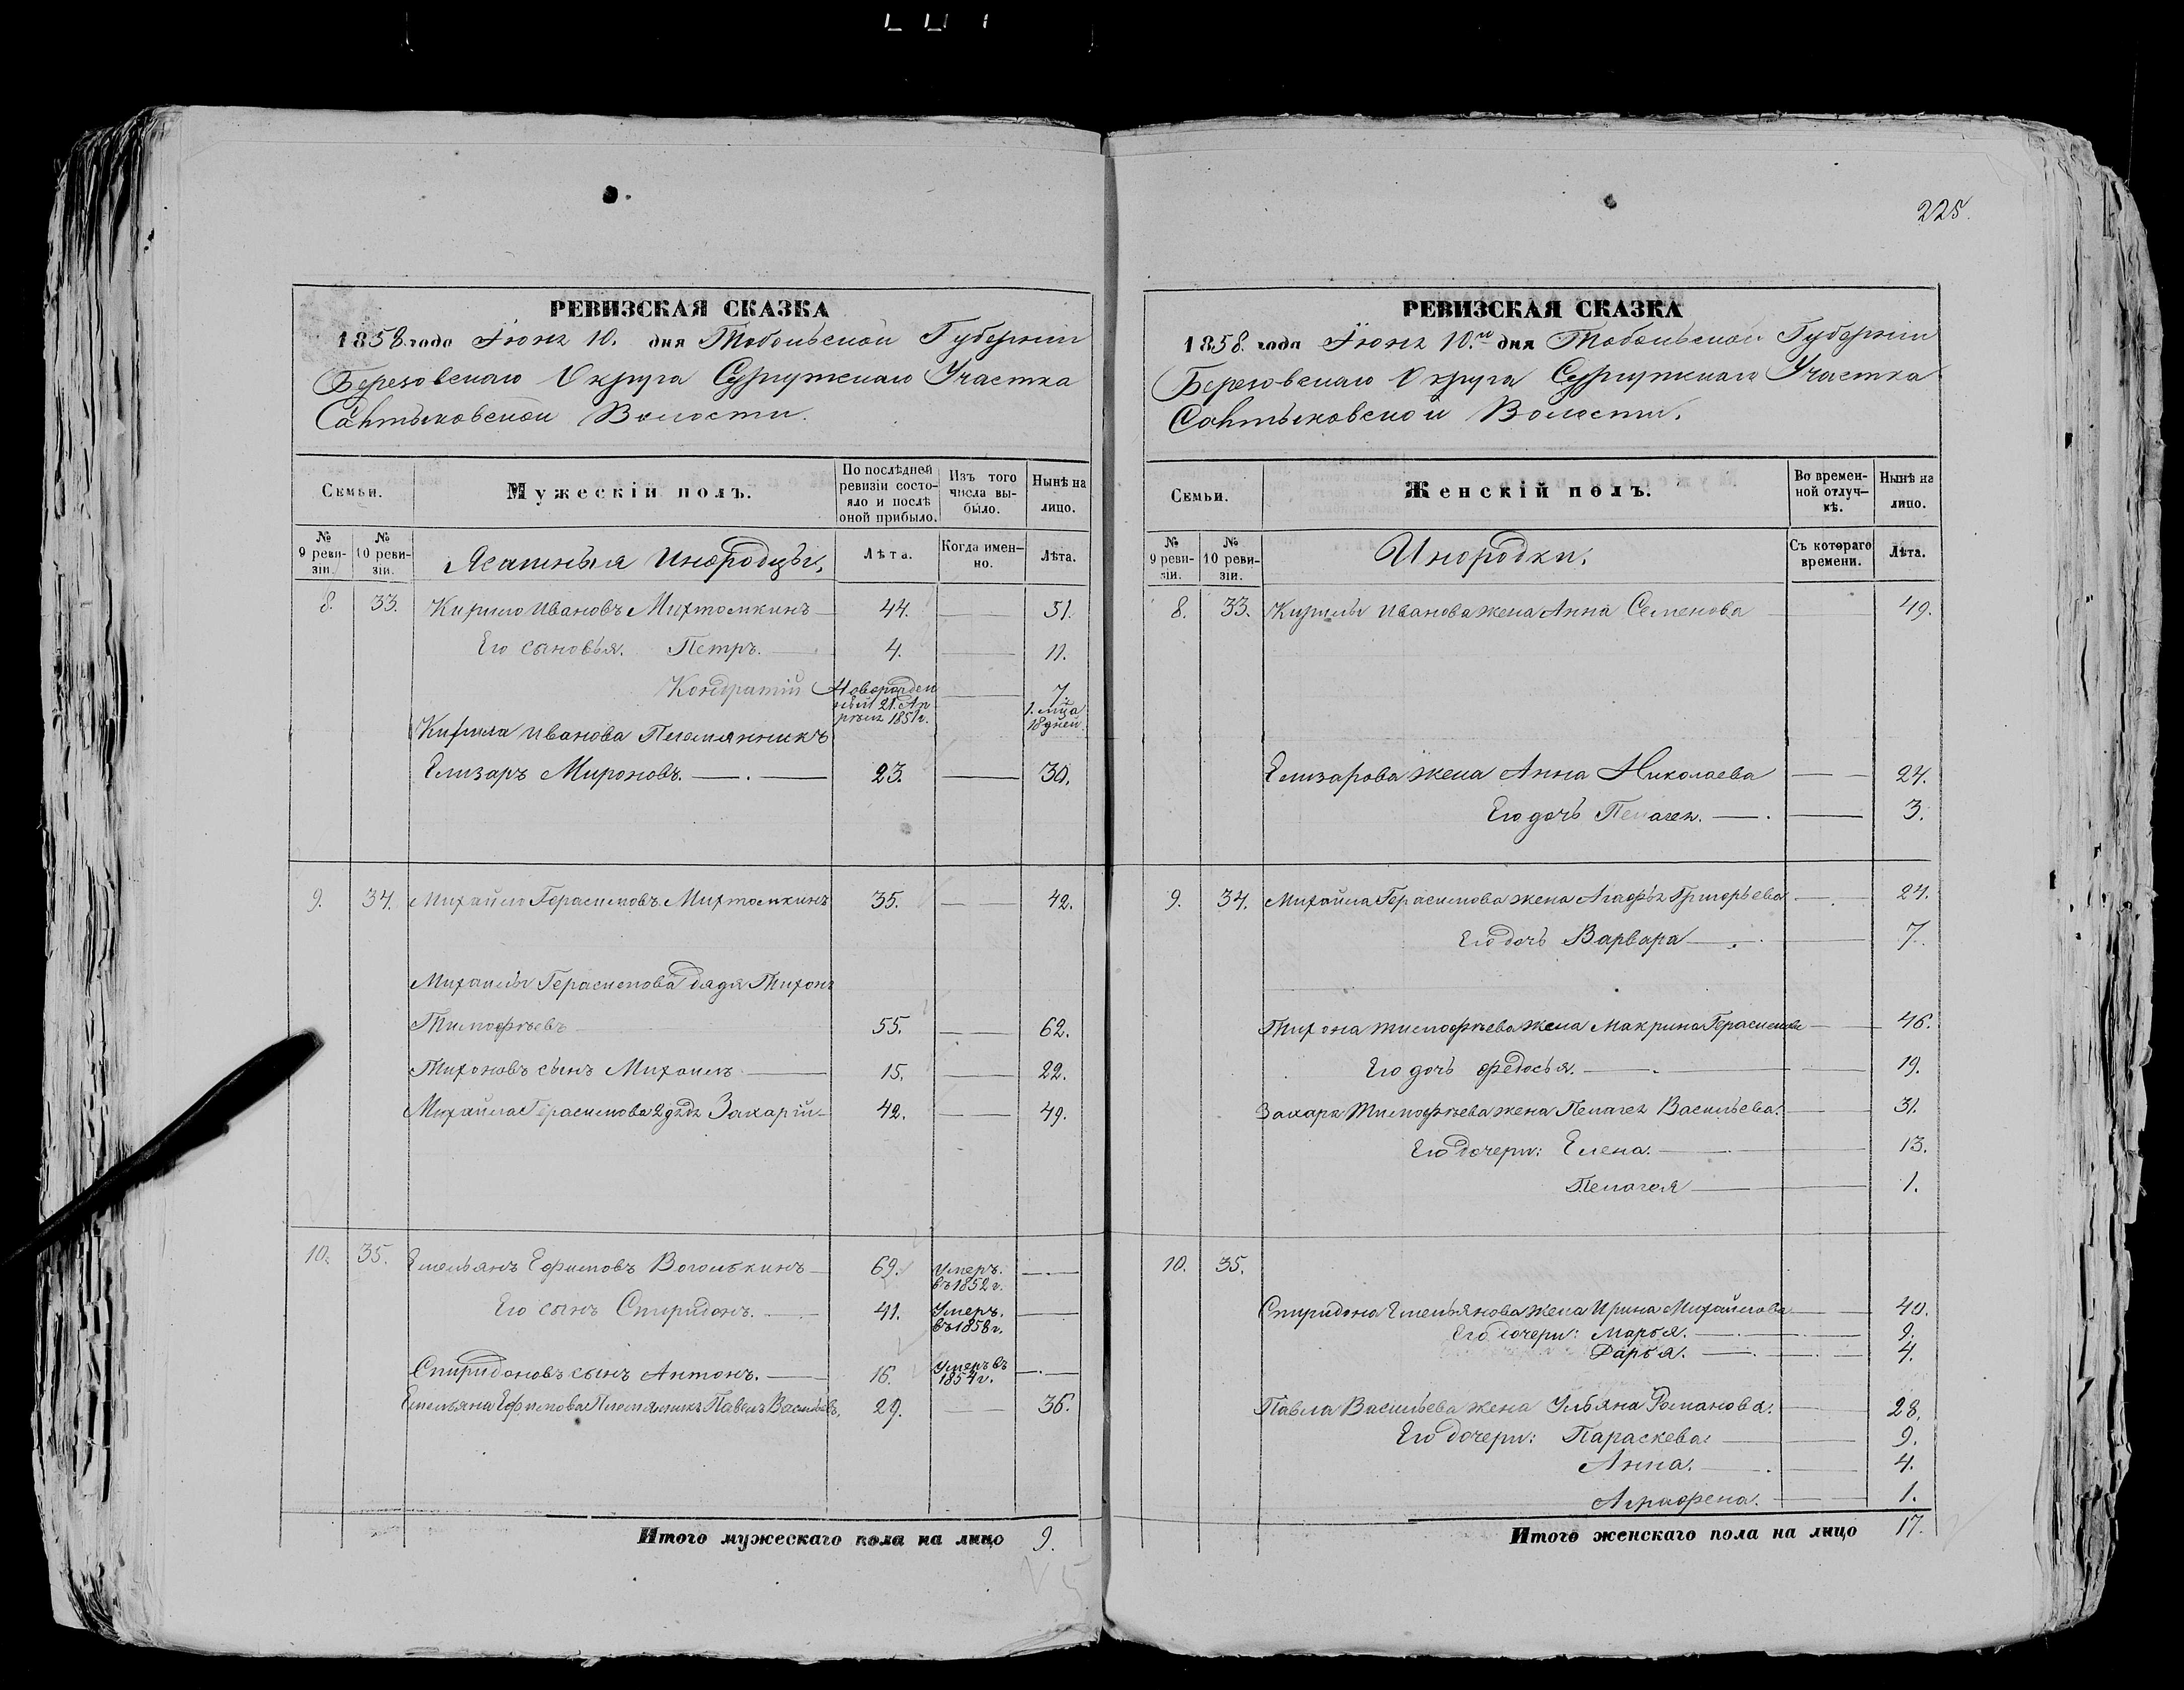 225.
РЕВИЗСКАЯ СКАЗКА
1858. года Іюня 10. дня Тобольской Губерніи
Березовскаго Округа Сургутскаго Участка
Волости.
Семьи.
Мужескій полъ.
По послѣдней ревизіи состояло и послѣ оной прибыло.
Изъ того числа выбыло.
Нынѣ на лицо.
№ 9 ревизіи.
№ 10 ревизіи.
Ясашныя Инородцы.
Лѣта.
Когда именно.
Лѣта.
8. 33. Кирило Ивановъ Мултомкинъ 44. — 51.
Его сыновья. Петръ. 4. — 11.
Кондратій Новорожденный 21. Апрѣля 1851 г. — 7. 1. мца 18 дней.
Кирила Иванова Племянникъ
Елизаръ Мироновъ. 23. — 30.
9. 34. Михайло Герасимовъ Мултомкинъ 35. — 42.
Михайлы Герасимова дядя Тихонъ
Тимофѣевъ 55. — 62.
Тихоновъ сынъ Михаилъ 15. — 22.
Михайла Герасимова 2 дядя Захарій 42. — 49.
10. 35. Емельянъ Ефимовъ 69. Умеръ. въ 1852 г. —
Его сынъ Спиридонъ. 41. Умеръ. въ 1858 г. —
Спиридоновъ сынъ Антонъ. 16. Умеръ въ 1854 г. —
Емельяна Ефимова Племянникъ Павелъ Васильевъ. 29. — 36.
Итого мужескаго пола на лицо 9.
РЕВИЗСКАЯ СКАЗКА
1858. года Іюня 10.го дня Тобольской Губерніи
Березовскаго Округа Сургутскаго Участка
Волости.
Семьи.
Женскій полъ.
Во временной отлучкѣ.
Нынѣ на лицо.
№ 9 ревизіи.
№ 10 ревизіи.
Инородки.
Съ котораго времени.
Лѣта.
8. 33. Кирилы Иванова жена Анна Семенова 49.
Елизарова жена Анна Николаева — 24.
Его дочь Пелагея. — 3.
9. 34. Михайла Герасимова жена Агафья Григорьева — 24.
Его дочь Варвара — 7.
Тихона Тимофѣева жена Макрина Герасимова — 46.
Его дочь Федосья. — 19.
Захара Тимофѣева жена Пелагея Васильева. — 31.
Его дочери: Елена. — 13.
Пелагея — 1.
10. 35.
Спиридона Емельянова жена Ирина Михайлова — 40.
Его дочери: Марья. — 9.
Дарья. — 4.
Павла Васильева жена Ульяна Романова. — 28.
Его дочери: Параскева — 9.
Анна. — 4.
Аграфена. — 1.
Итого женскаго пола на лицо 17.